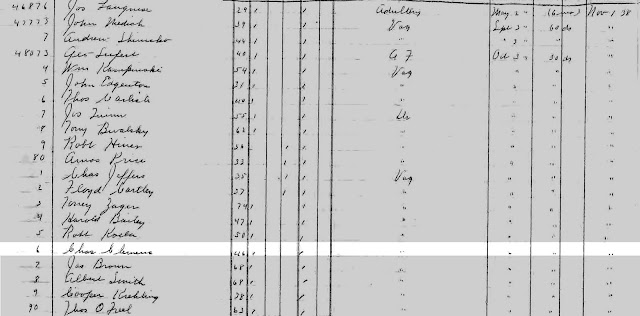 46876 Jos 29 1 1 Adultery May 2 " (6 mo) Nov 1 38
47773 John 39 1 1 Vag Sept 3 " 60 ds "
7 Andrew 44 1 1 " " 3 " " "
48073 Geo Seifert 40 1 1 A F Oct 3 " 30 ds "
4 Wm 54 1 1 Vag " " "
5 John Edgerton 21 1 1 " " " "
6 Thos Carlisle 1 1 " " " "
7 Jos Quinn 55 1 1 " " "
8 Tony 62 1 1 " " " "
9 Robt Hines 36 1 1 " " " "
80 Amos Price 32 1 1 " " " "
1 Chas Jeffers 35 1 1 Vag " " "
2 Floyd Cartley 37 1 1 " " " "
3 Toney Zager 74 1 1 " " " "
4 Harold Bailey 47 1 1 " " " "
5 Robt 50 1 1 " " " "
6 Chas Clemens 46 1 1 " " " "
7 Jos Brown 68 1 1 " " " "
8 Albert Smith 68 1 1 " " " "
9 Cooper 38 1 1 " " " "
90 Thos O 63 1 1 " " " "